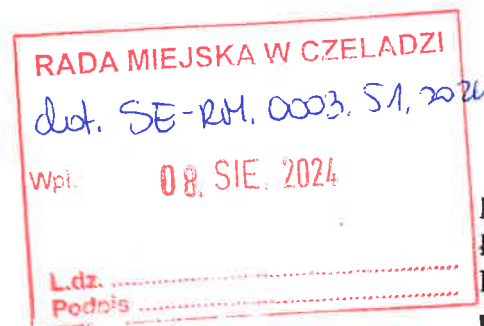 RADA MIEJSKA W CZELADZI
dot. SE-RM. 0003. 51, 202
Wpł. 08. SIE. 2024
L.dz. ......................................................
Podpis ......................................................